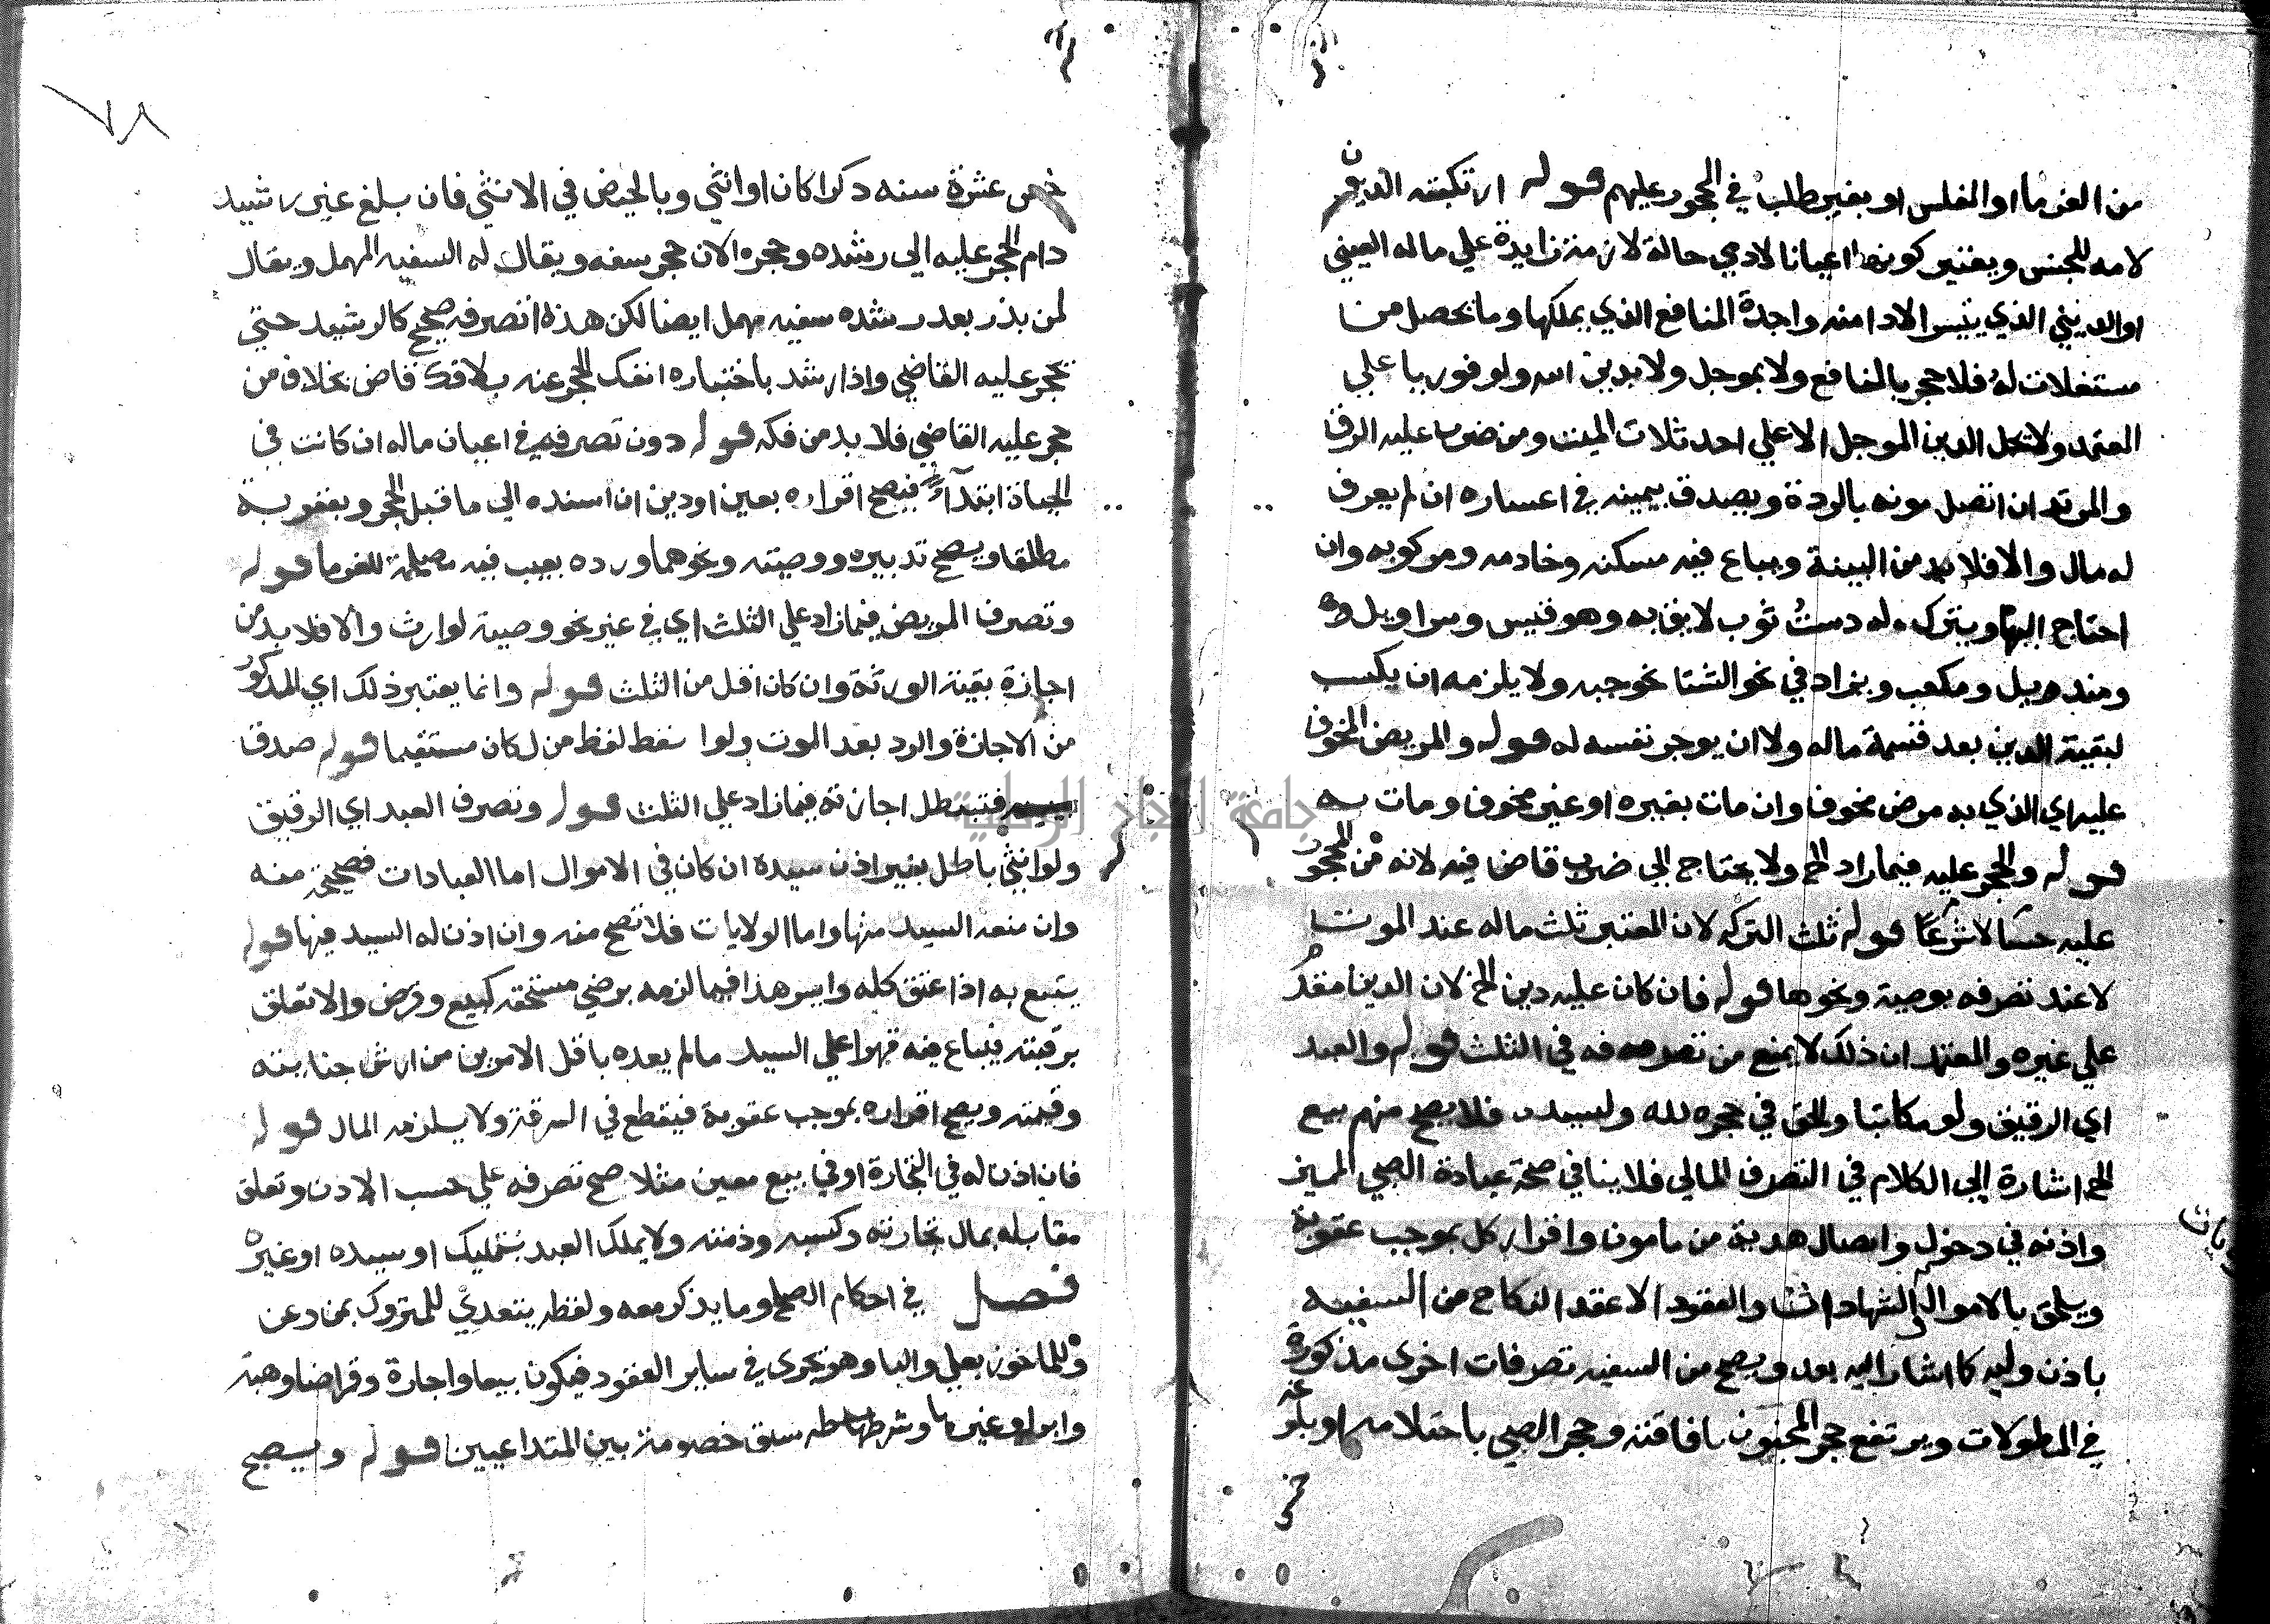 من الغرما او المفلس او بغير طلب في المحجور عليهم قوله ارتكبته الديون
لامه للجنس ويعتبر كونها اعيانا لادمي حالة لازمة زايدة علي ماله العيني
او الديني الذي يتيسر الادا منه واجدة المنافع الذي يملكها وما تحصل من
مستغلات له فلا حجر بالمنافع ولا بموجل ولا بدين الله ولو فوريا علي
المعتمد ولا تحل الدين الموجل الا علي احد ثلاث الميت ومن ضرب عليه الرق
والمرتد ان اتصل موته بالردة ويصدق بيمينه في اعساره ان لم يعرف
له مال والا فلا بد من البينة ويباع فيه مسكنه وخادمه ومركوبه وان
احتاج اليها ويترك له دست ثوب لايق به وهو قميص وسراويل
ومنديل ومكعب ويزاد في نحو الشتا نحو جبه ولا يلزمه ان يكسب
لبقية الدين بعد قسمة ماله ولا ان يوجر نفسه له قوله والمريض المخوف
عليه اي الذي به مرض مخوف وان مات بغيره او غير مخوف ومات به
قوله والحجر عليه فيما زاد الخ ولا يحتاج الي ضرب قاض فيه لانه من المحجور
عليه حسا لا شرعا قوله ثلث التركه لان المعتبر ثلث ماله عند الموت
لا عند تصرفه بوصية ونحوها قوله فان كان عليه دين الخ لان الدين مقدم
علي غيره والمعتمد ان ذلك لا يمنع من تصرفه في الثلث قوله والعبد
اي الرقيق ولو مكاتبا والحق في حجره لله ولسيده فلا يصح منهم بيع
الخ اشارة الي الكلام في التصرف المالي فلا ينافي صحة عبادة الصبي المميز
واذنه في دخول وايصال هدية من مامون واقرار كل بموجب عقوبة
ويلحق بالاموال الشهادات والعقود الا عقد النكاح من السفيه
باذن وليه كما اشار اليه بعد ويصح من السفيه تصرفات اخري مذكورة
في المطولات ويرتفع حجر المجنون بافاقته وحجر الصبي باحتلامه او بلوغه
خمس
٧٨
خمس عشرة سنه ذكرا كان او انثي وبالحيض في الانثي فان بلغ غير رشيد
دام الحجر عليه الي رشده وحجره الان حجر سفه ويقال له السفيه المهمل ويقال
لمن بذر بعد رشده سفيه مهمل ايضا لكن هذا تصرفه صحيح كالرشيد حتي
يحجر عليه القاضي واذا رشد باختباره انفك الحجر عنه بلا فك قاض بخلاف من
حجر عليه القاضي فلا بد من فكه قوله دون تصرفه في اعيان ماله ان كانت في
الحياة ابتدآ فيصح اقراره بعين او دين ان اسنده الي ما قبل الحجر وبعقوبة
مطلقا ويصح تدبيره ووصيته ونحوهما ورده بعيب فيه مصلحة للغرما قوله
وتصرف المريض فيما زاد علي الثلث اي في غير نحو وصية لوارث والا فلا بد من
اجازة بقية الورثة وان كان اقل من الثلث قوله وانما يعتبر ذلك اي المذكور
من الاجازة والرد بعد الموت ولو اسقط لفظ من لكان مستقيما قوله صدق
فتبطل اجازته فيما زاد علي الثلث قوله وتصرف العبد اي الرقيق
ولو انثي باطل بغير اذن سيده ان كان في الاموال اما العبادات فصحيحة منه
وان منعه السيد منها واما الولايات فلا تصح منه وان اذن له السيد فيها قوله
يتبع به اذا عتق كله وايسر هذا فيما لزمه برضي مستحقه كبيع وقرض والا تعلق
برقبته فيباع فيه قهرا علي السيد ما لم يفده باقل الامرين من ارش جنايته
وقيمته ويصح اقراره بموجب عقوبة فيقطع في السرقة ولا يلزمه المال قوله
فان اذن له في التجارة او في بيع معين مثلا صح تصرفه علي حسب الاذن وتعلق
مقابله بمال تجارته وكسبه وذمته ولا يملك العبد بتمليك او سيده او غيره
فصل في احكام الصلح وما يذكر معه ولفظه يتعدي للمتروك بمن وعن
وللماخوذ بعلي والبا وهو يجري في ساير العقود فيكون بيعا واجارة وقراضا وهبة
وابرا وغيرها وشرطه سبق خصومة بين المتداعيين قوله ويصح
جامعة النجاح الوطنية